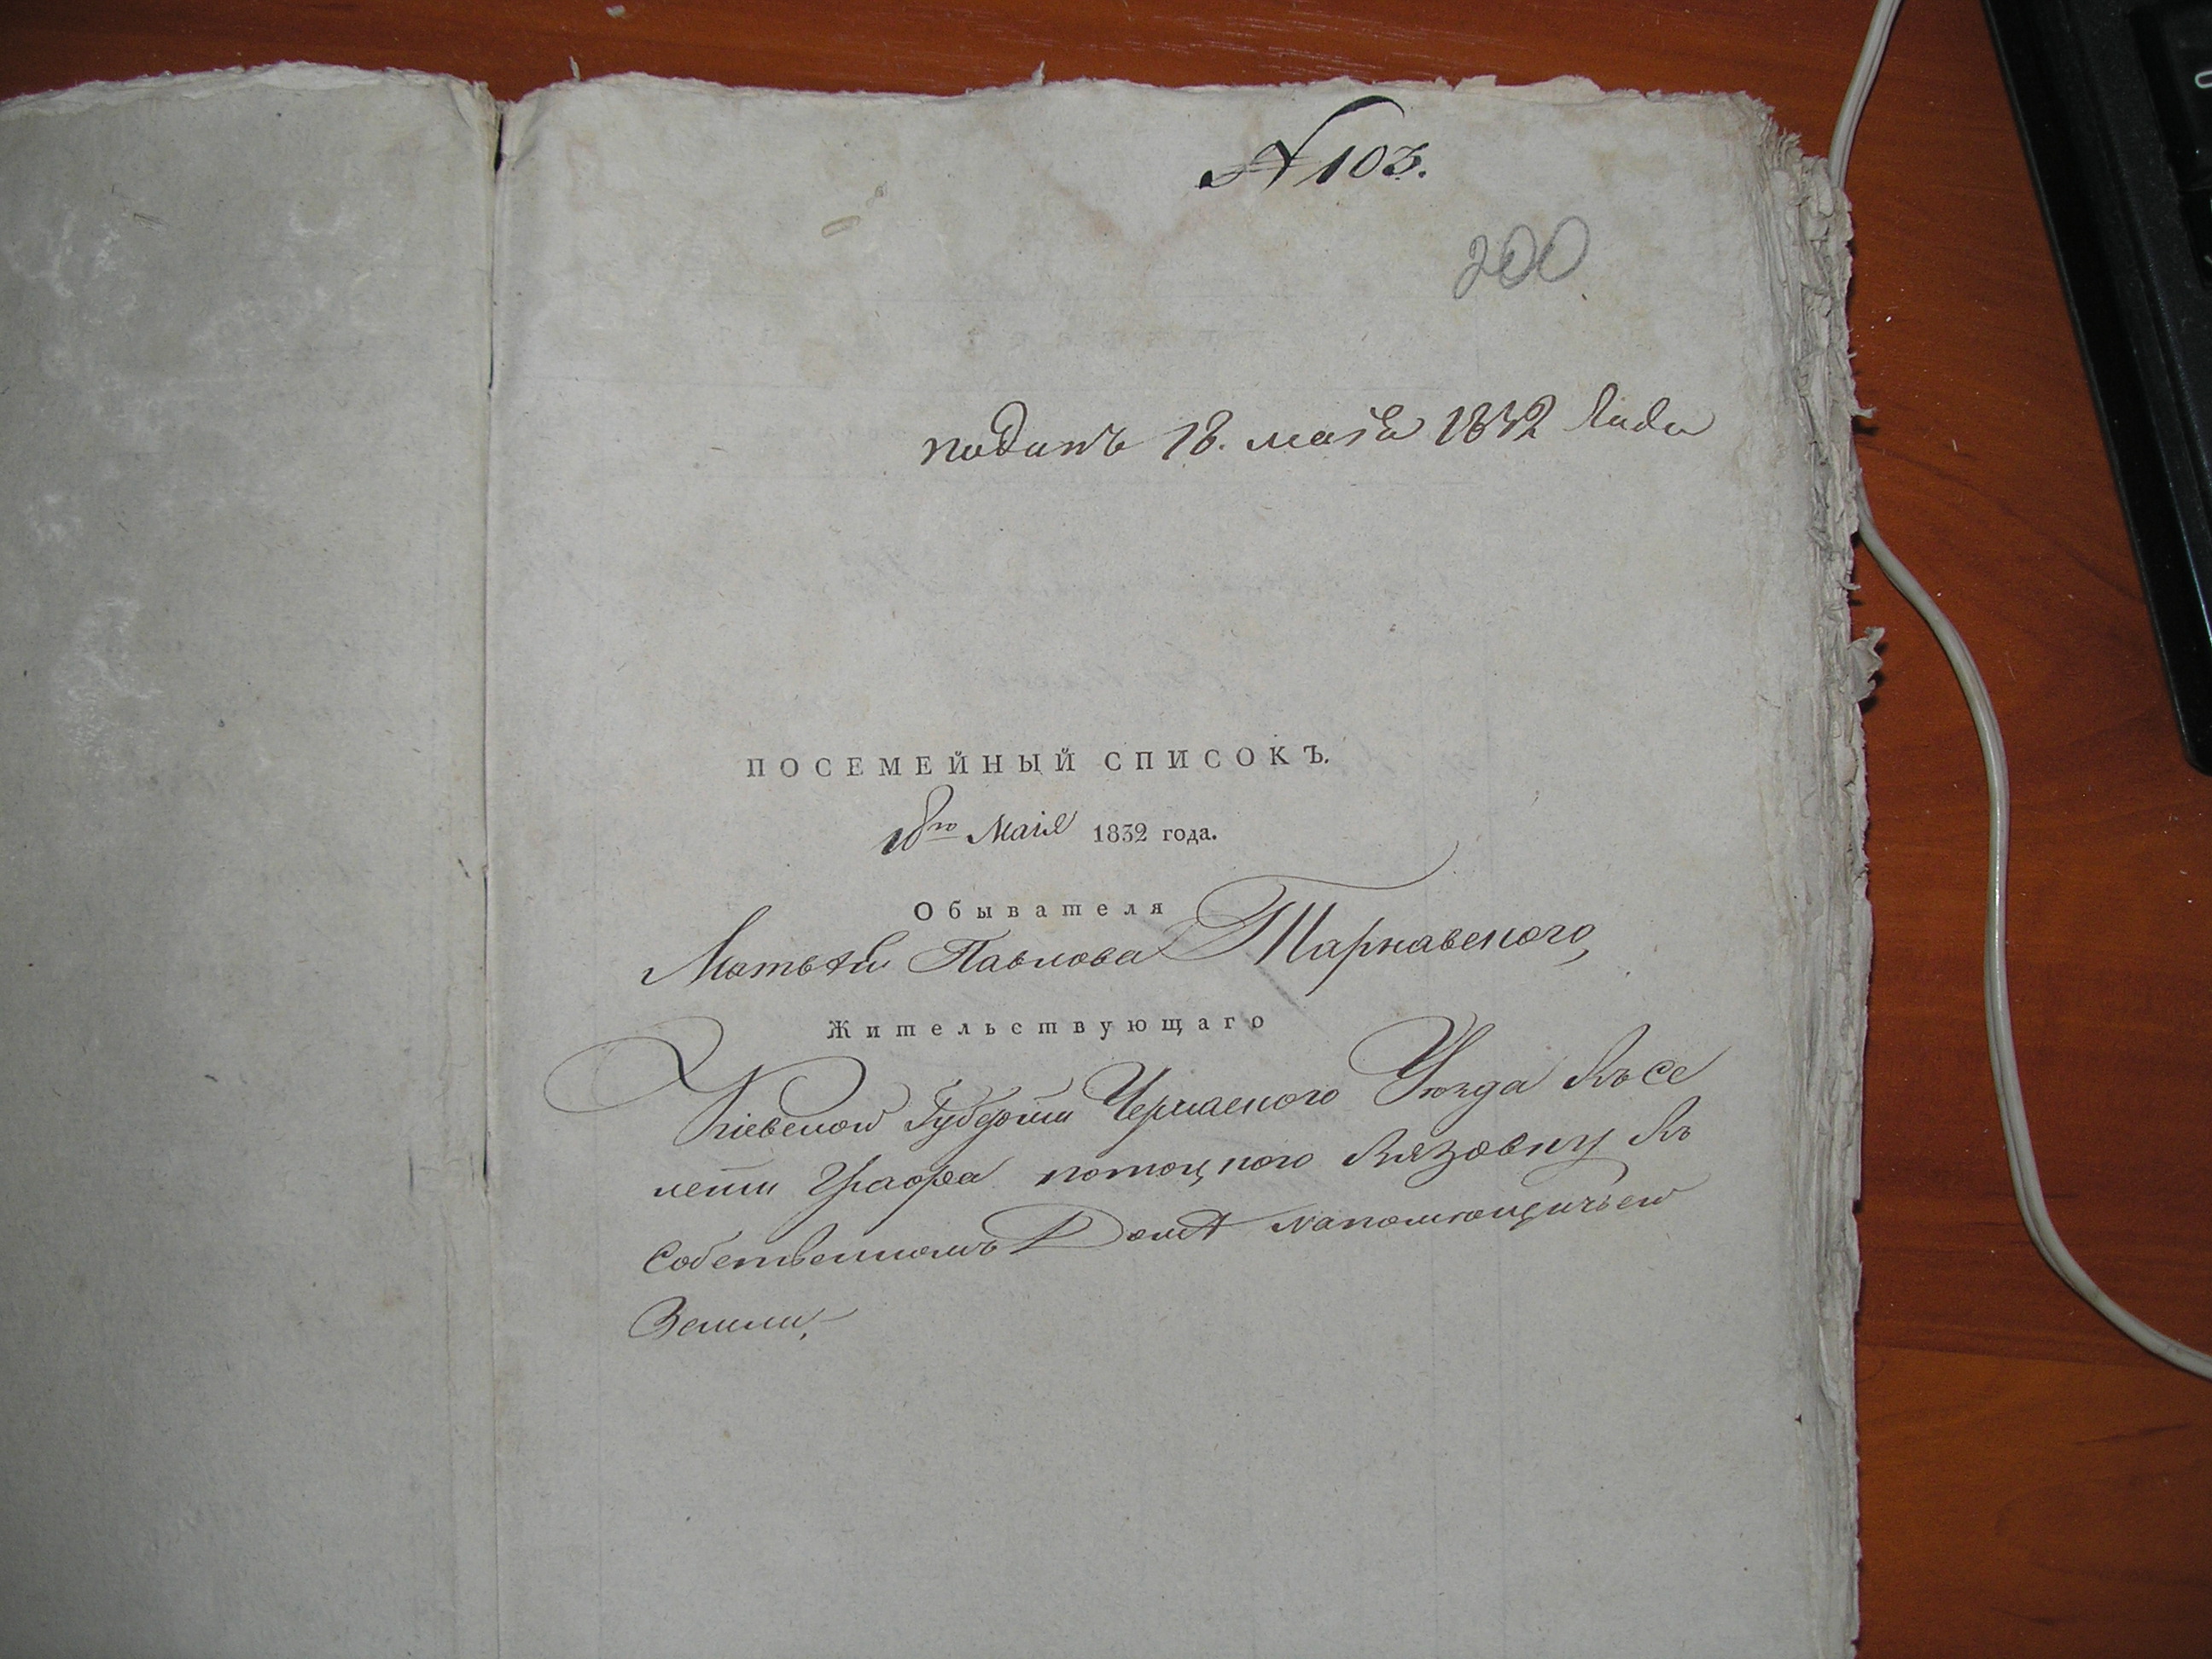 № 103.
200
поданъ 18. маія 1832 Года
ПОСЕМЕЙНЫЙ СПИСОКЪ.
18го Маія 1832 года.
Обывателя
Матвѣя Павлова Тарнавского,
Жительствующаго
Кіевской Губерніи Черкаского Уѣзда Въ се
леніи Графа потоцкого Вязовку Въ
Собственномъ Домѣ на помѣщичьей
Земли,